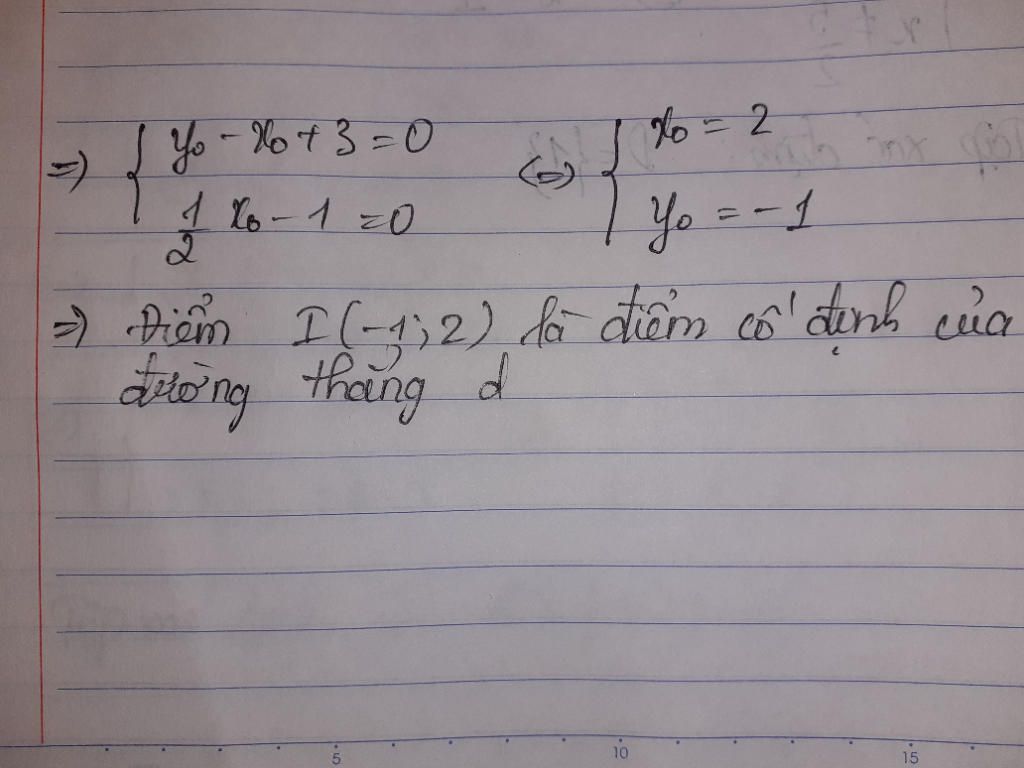 => { y₀ - x₀ + 3 = 0 <=> { x₀ = 2
1/2 x₀ - 1 = 0 y₀ = -1
=> Điểm I(-1; 2) là điểm cố định của
đường thẳng d
5 10 15